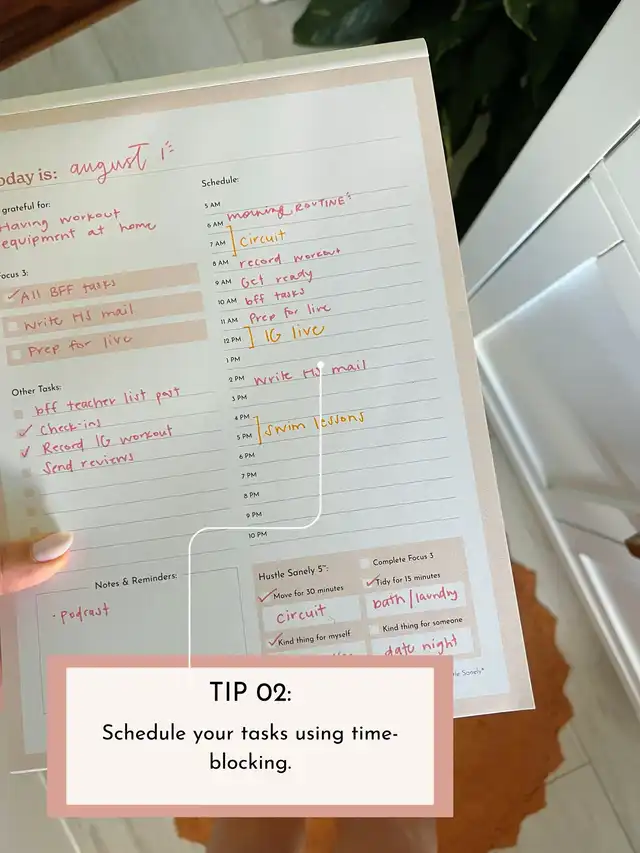 oday is: august 1
grateful for:
Having workout
equipment at home
ocus 3:
All BFF tasks
Write HS mail
Prep for live
Other Tasks:
bff teacher list post
Check-ins
Record IG workout
Send reviews
Schedule:
5 AM
6 AM morning ROUTINE
7 AM Circuit
8 AM record workout
9 AM Get ready
10 AM bff tasks
11 AM Prep for live
12 PM IG live
1 PM
2 PM Write HS mail
3 PM
4 PM
5 PM Swim lessons
6 PM
7 PM
8 PM
9 PM
10 PM
Notes & Reminders:
• podcast
Hustle Sanely 5™:
Complete Focus 3
Move for 30 minutes
circuit
Tidy for 15 minutes
bath/laundry
Kind thing for myself
Kind thing for someone
date night
tle Sanely®
TIP 02:
Schedule your tasks using time-
blocking.